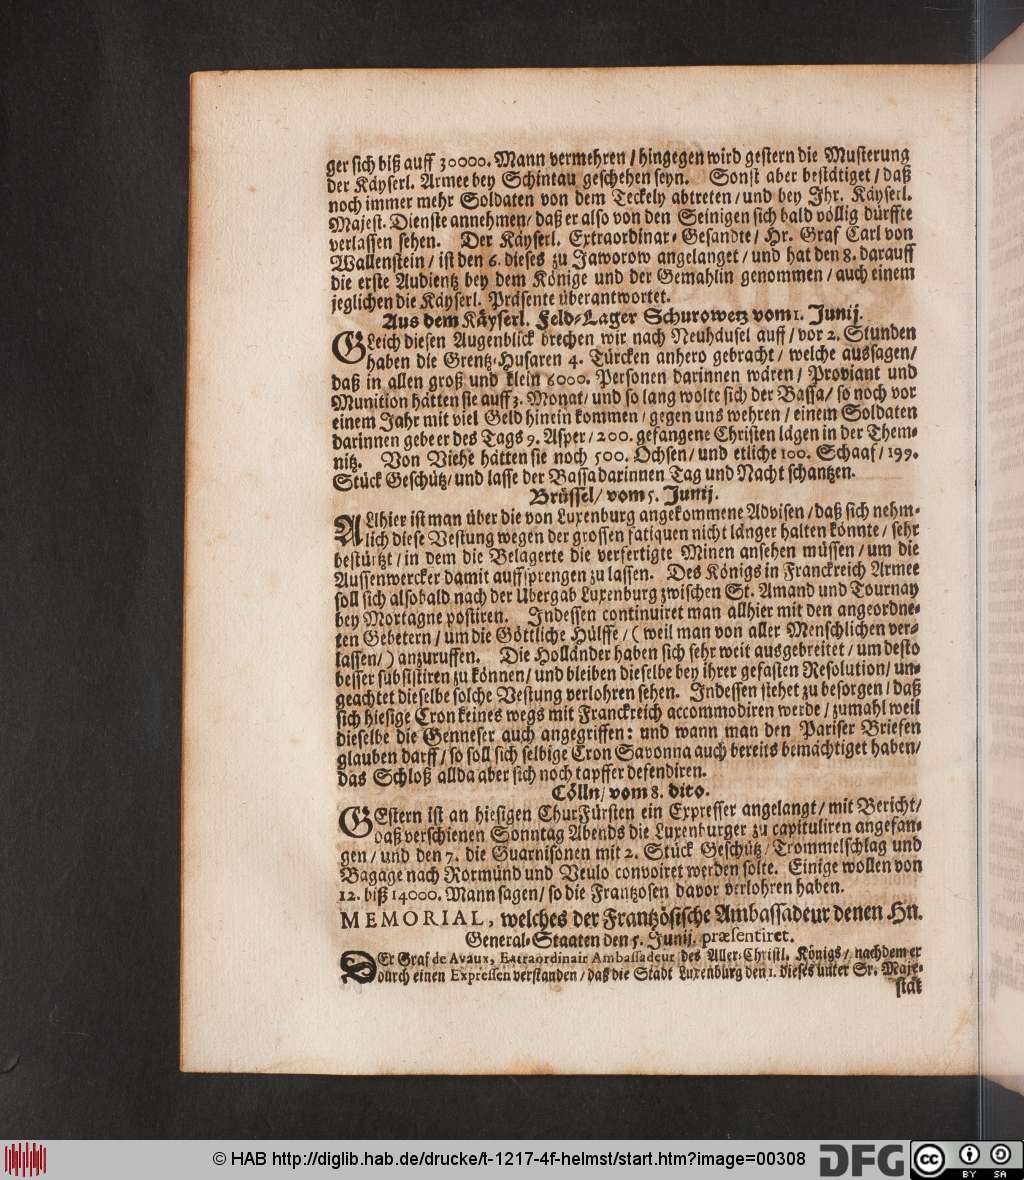 ger sich biß auff 30000. Mann vermehren / hingegen wird gestern die Musterung
der Käyserl. Armee bey Schintau geschehen seyn. Sonst aber bestätiget / daß
noch immer mehr Soldaten von dem Teckely abtreten / und bey Ihr. Käyserl.
Majest. Dienste annehmen / daß er also von den Seinigen sich bald völlig dürffte
verlassen sehen. Der Käyserl. Extraordinar-Gesandte / Hr. Graf Carl von
Wallenstein / ist den 6. dieses zu Jaworow angelanget / und hat den 8. darauff
die erste Audientz bey dem Könige und der Gemahlin genommen / auch einem
jeglichen die Käyserl. Präsente überantwortet.
Aus dem Käyserl. Feld-Lager Schurowetz vom 1. Junij.
GLeich diesen Augenblick brechen wir nach Neuhäusel auff / vor 2. Stunden
haben die Grentz-Husaren 4. Türcken anhero gebracht / welche aussagen /
daß in allen groß und klein 6000. Personen darinnen wären / Proviant und
Munition hätten sie auff 3. Monat / und so lang wolte sich der Bassa / so noch vor
einem Jahr mit viel Geld hinein kommen / gegen uns wehren / einem Soldaten
darinnen gebe er des Tags 9. Asper / 200. gefangene Christen lägen in der Them-
nitz. Von Viehe hätten sie noch 500. Ochsen / und etliche 100. Schaaf / 199.
Stück Geschütz / und lasse der Bassa darinnen Tag und Nacht schantzen.
Brüssel / vom 5. Junij.
ALlhier ist man über die von Luxenburg angekommene Advisen / daß sich nehm-
lich diese Vestung wegen der grossen fatiquen nicht länger halten könnte / sehr
bestürtzt / in dem die Belagerte die verfertigte Minen ansehen müssen / um die
Aussenwercker damit auffsprengen zu lassen. Des Königs in Franckreich Armee
soll sich alsobald nach der Ubergab Luxenburg zwischen St. Amand und Tournay
bey Mortagne postiren. Indessen continuiret man allhier mit den angeordne-
ten Gebetern / um die Göttliche Hülffe / ( weil man von aller Menschlichen ver-
lassen / ) anzuruffen. Die Holländer haben sich sehr weit ausgebreitet / um desto
besser subsistiren zu können / und bleiben dieselbe bey ihrer gefasten Resolution / un-
geachtet dieselbe solche Vestung verlohren sehen. Indessen stehet zu besorgen / daß
sich hiesige Cron keines wegs mit Franckreich accommodiren werde / zumahl weil
dieselbe die Genneser auch angegriffen: und wann man den Pariser Briefen
glauben darff / so soll sich selbige Cron Savonna auch bereits bemächtiget haben /
das Schloß allda aber sich noch tapffer defendiren.
Cölln / vom 8. dito.
GEstern ist an hiesigen ChurFürsten ein Expresser angelangt / mit Bericht /
daß verschienen Sonntag Abends die Luxenburger zu capituliren angefan-
gen / und den 7. die Guarnisonen mit 2. Stück Geschütz / Trommelschlag und
Bagage nach Rormünd und Veulo convoiret werden solte. Einige wollen von
12. biß 14000. Mann sagen / so die Frantzosen davor verlohren haben.
MEMORIAL, welches der Frantzösische Ambassadeur denen Hn.
General-Staaten den 5. Junij. præsentiret.
DEr Graf de Avaux, Extraordinair Ambassadeur des Aller-Christl. Königs / nachdem er
durch einen Expressen verstanden / das die Stadt Luxenburg den 1. dieses unter Sr. Maje-
stät
© HAB http://diglib.hab.de/drucke/t-1217-4f-helmst/start.htm?image=00308
DFG
cc
BY
SA